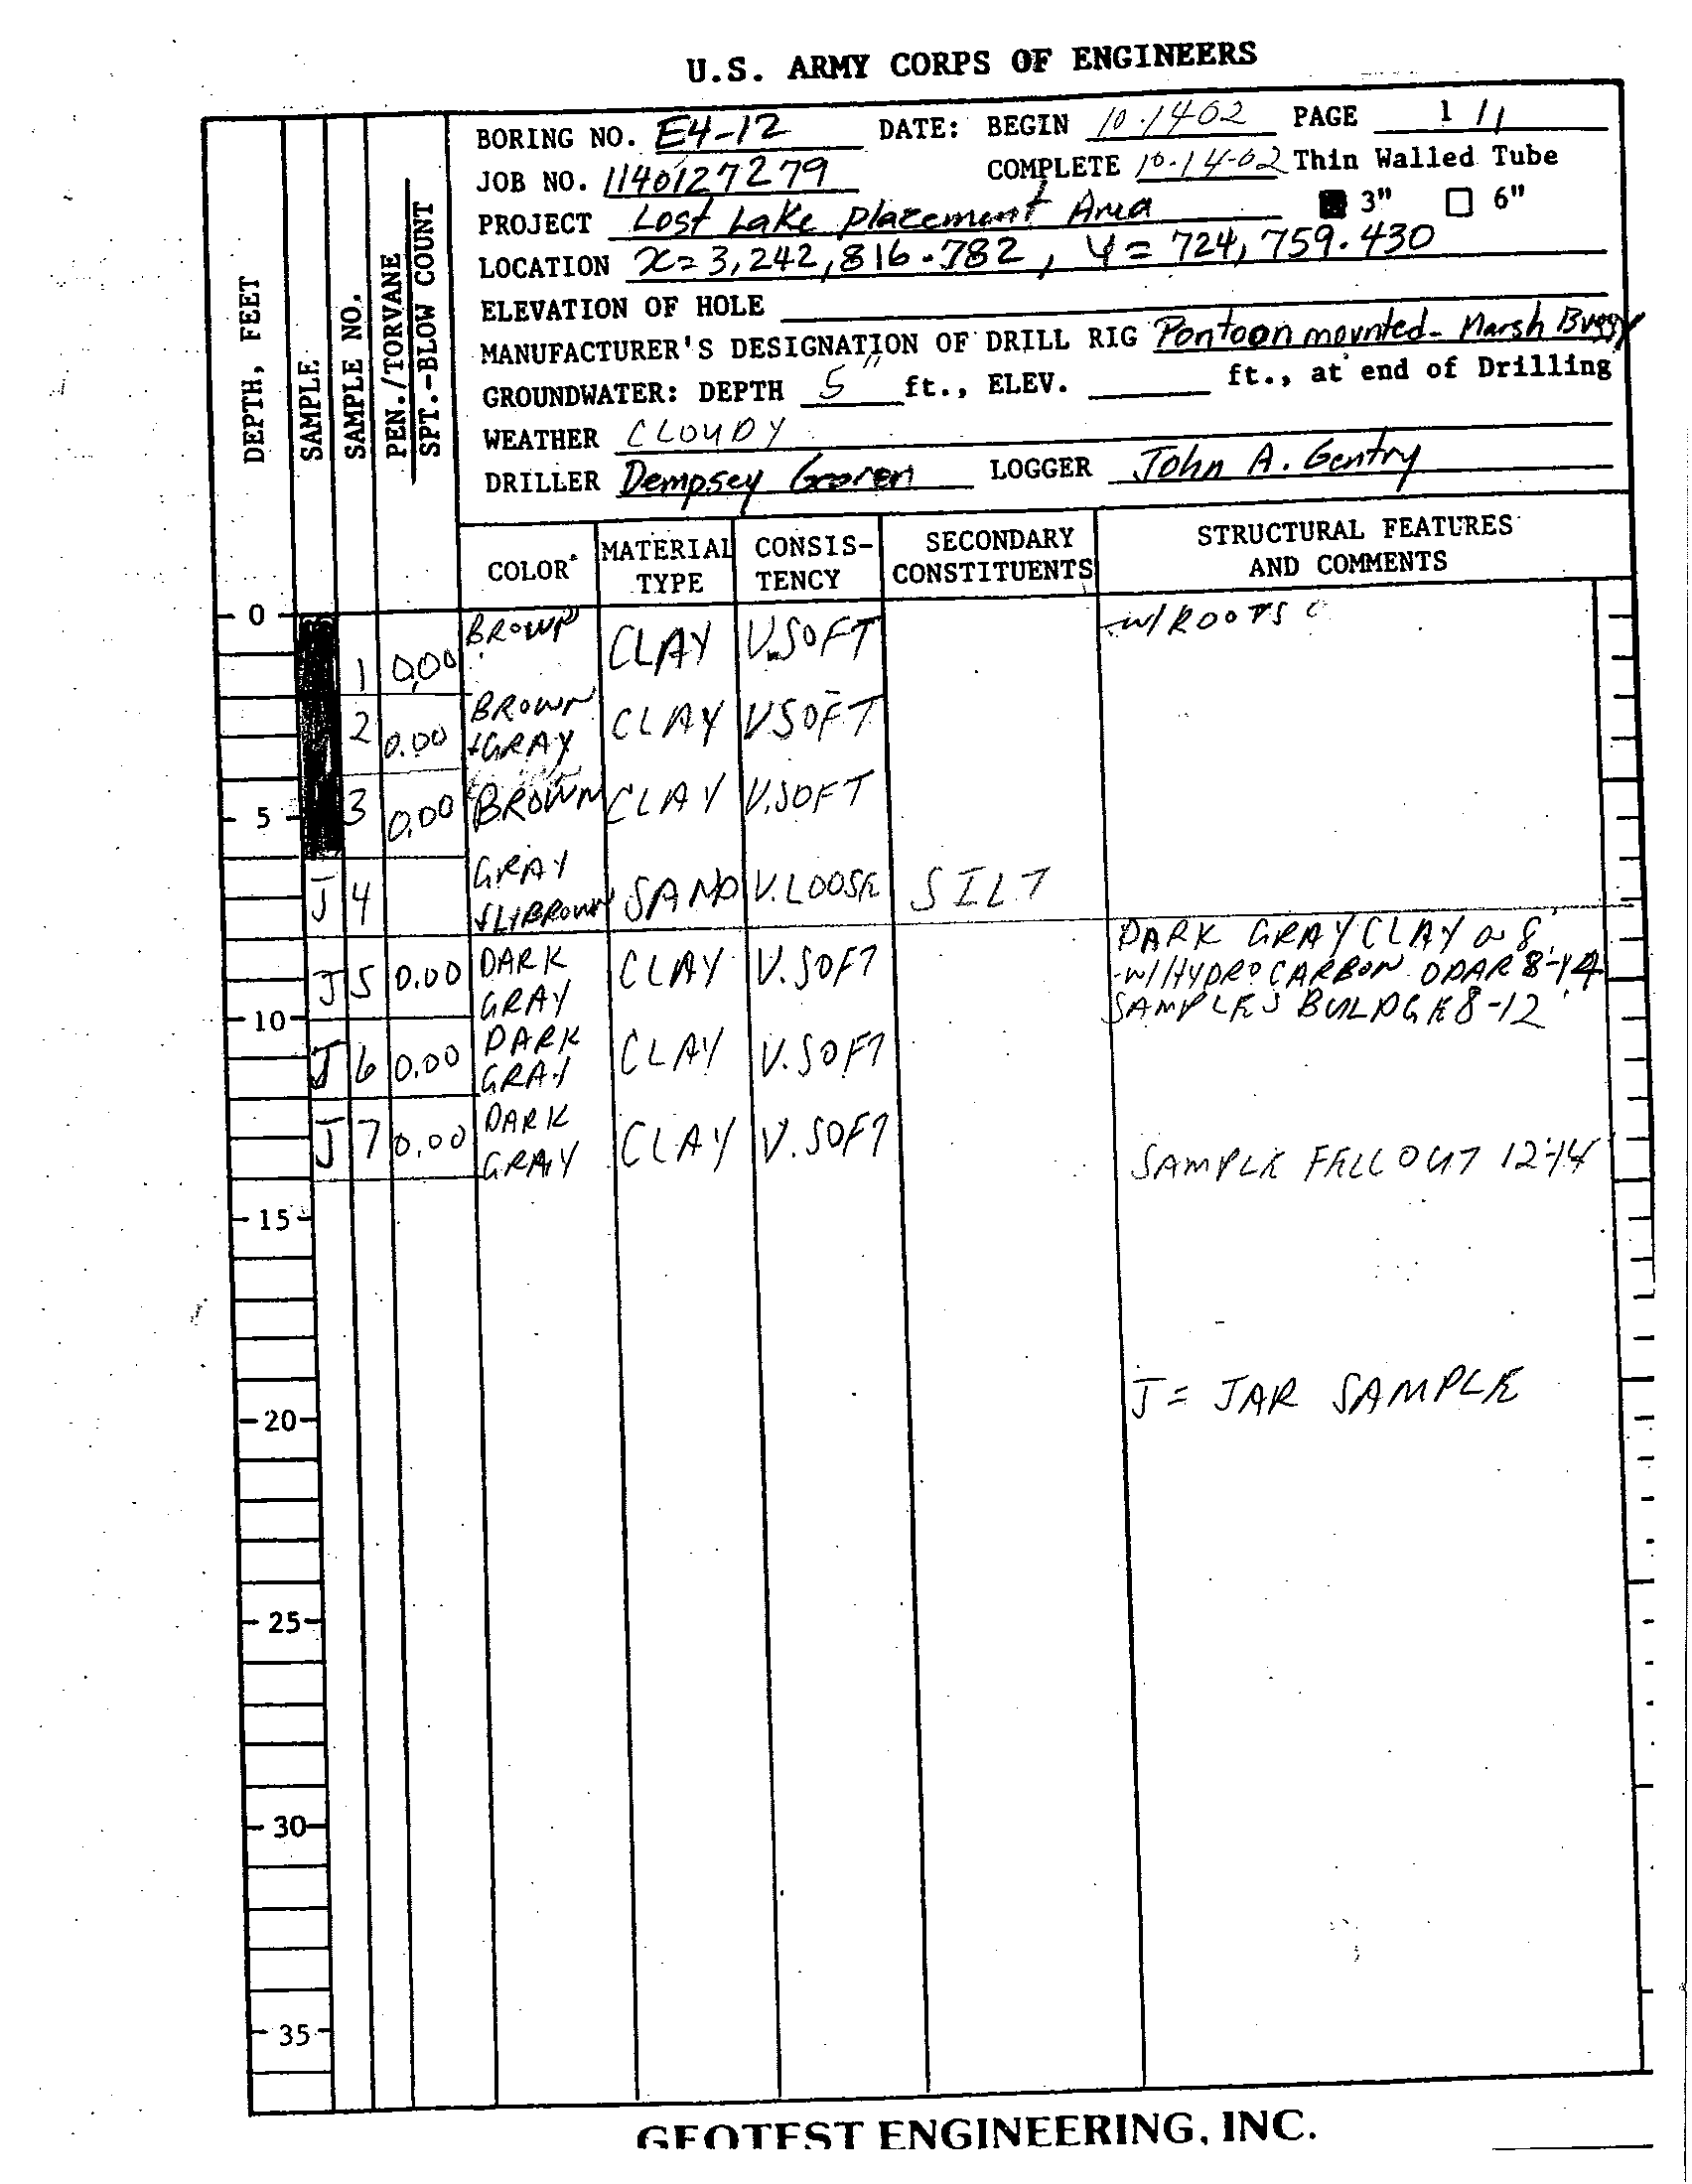 U.S. ARMY CORPS OF ENGINEERS
DEPTH, FEET
SAMPLE
SAMPLE NO.
PEN./TORVANE
SPT.-BLOW COUNT
BORING NO. E4-12 DATE: BEGIN 10-14-02 PAGE 1/1
JOB NO. 1140127279 COMPLETE 10-14-02 Thin Walled Tube
PROJECT Lost Lake Placement Area 3" 6"
LOCATION X= 3,242,816.782, Y= 724,759.430
ELEVATION OF HOLE
MANUFACTURER'S DESIGNATION OF DRILL RIG Pontoon mounted- Marsh Buggy
GROUNDWATER: DEPTH 5" ft., ELEV. ft., at end of Drilling
WEATHER CLOUDY
DRILLER Dempsey LOGGER John A. Gentry
COLOR MATERIAL TYPE CONSIS-TENCY SECONDARY CONSTITUENTS STRUCTURAL FEATURES AND COMMENTS
0
1 0.00 BROWN CLAY V.SOFT -w/ROOTS
2 0.00 BROWN +GRAY CLAY V SOFT
5
3 0.00 BROWN CLAY V.SOFT
J 4 GRAY +LTBROWN SAND V.LOOSE SILT
DARK GRAY CLAY @ 8'
J 5 0.00 DARK GRAY CLAY V.SOFT -W/HYDROCARBON ODAR 8-14
SAMPLES BUILDGE 8-12'
10
J 6 0.00 DARK GRAY CLAY V.SOFT
J 7 0.00 DARK GRAY CLAY V.SOFT SAMPLE FELL OUT 12-14
15
J = JAR SAMPLE
20
25
30
35
GEOTEST ENGINEERING, INC.